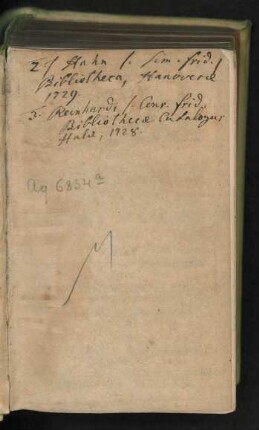 2.) Hahn /. Sim. frid. /
Bibliotheca, Hanoverae
1729.
3. Reinhardi /. Conr. frid.
Bibliothecae Catalogus
Halae, 1728.
Aq 6854